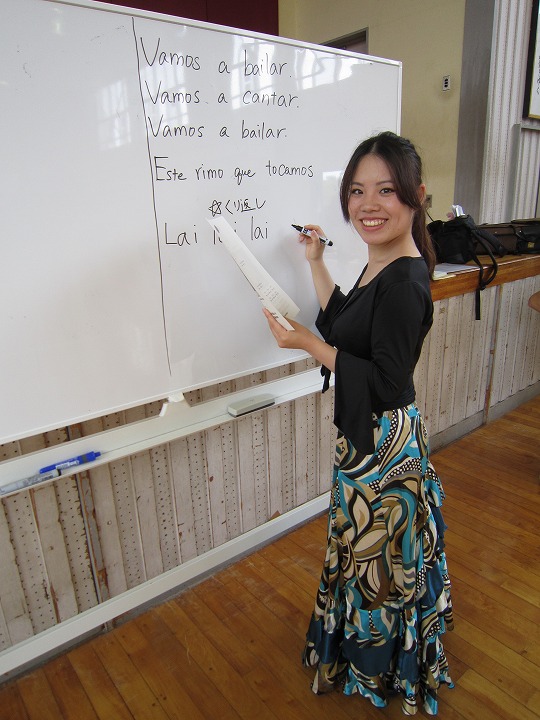 Vamos a bailar.
Vamos a cantar.
Vamos a bailar.
Este rimo que tocamos
くり返し
Lai lai lai